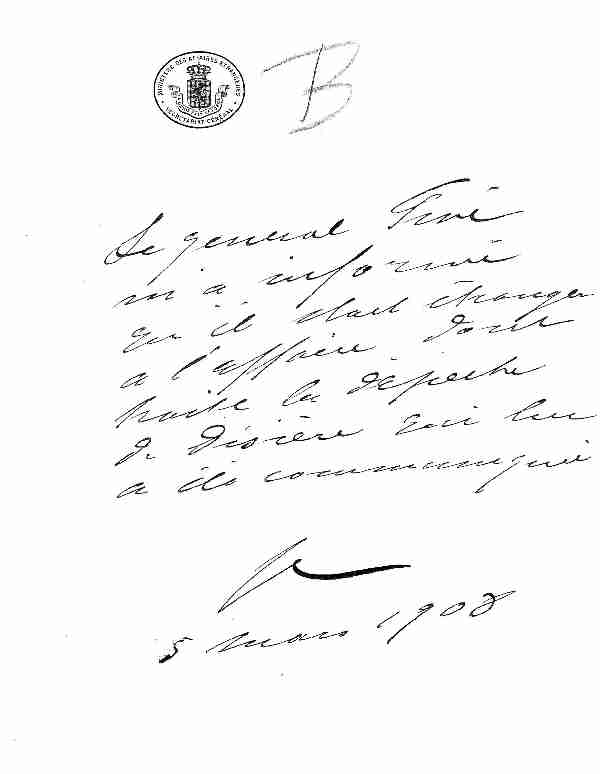 MINISTÈRE DES AFFAIRES ÉTRANGÈRES
SECRÉTARIAT GÉNÉRAL
B
Le général Fivé
m'a informé
qu'il était étranger
à l'affaire dont
traite la dépêche
de lisière qui lui
a été communiquée
5 mars 1908